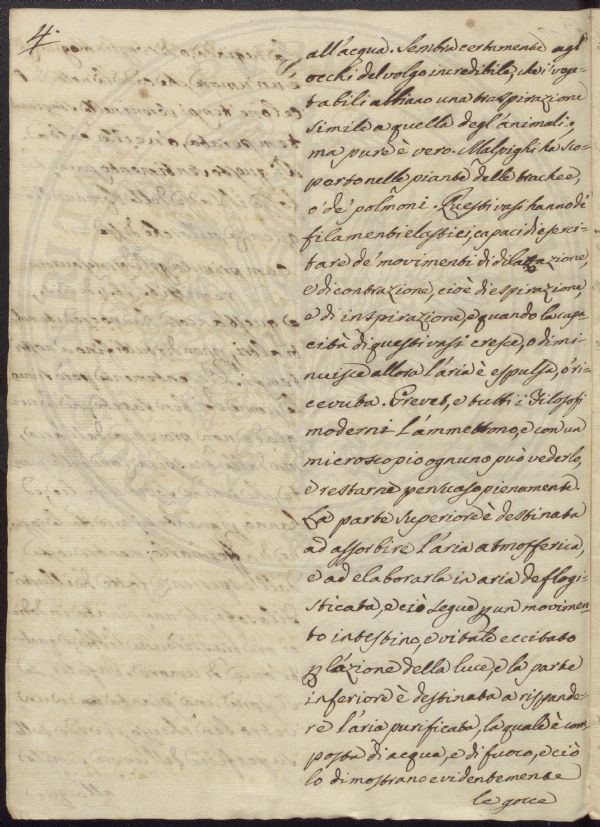 4.
all'acqua. Sembra certamente agl'
occhi del volgo incredibile, che i vege-
tabili abbiano una traspirazione
simile a quella degl'animali,
ma pure è vero. Malpighi ha sco-
perto nelle piante delle trachee,
o' de' polmoni. Questi vasi hanno de'
filamenti elastici, capaci di eserci-
tare de' movimenti di dilatazione,
e di contrazione, cioè di espirazione,
e di inspirazione, e quando la capa-
cità di questi vasi cresce, o dimi
nuisce allora l'aria è espulsa, o ri-
cevuta. Greves, e tutti i Filosofi
moderni l'ammettono, e con un
microscopio ognuno può vederlo,
e restarne persuaso pienamente.
La parte superiore è destinata
ad assorbire l'aria atmosferica,
e ad elaborarla in aria deflogi-
sticata, e ciò segue p un movimen-
to intestino, e vitale eccitato
p l'azione della luce, e la parte
inferiore è destinata a rispande-
re l'aria purificata, la quale è com-
posta di acqua, e di fuoco, e ciò
lo dimostrano evidentemente
le gocce